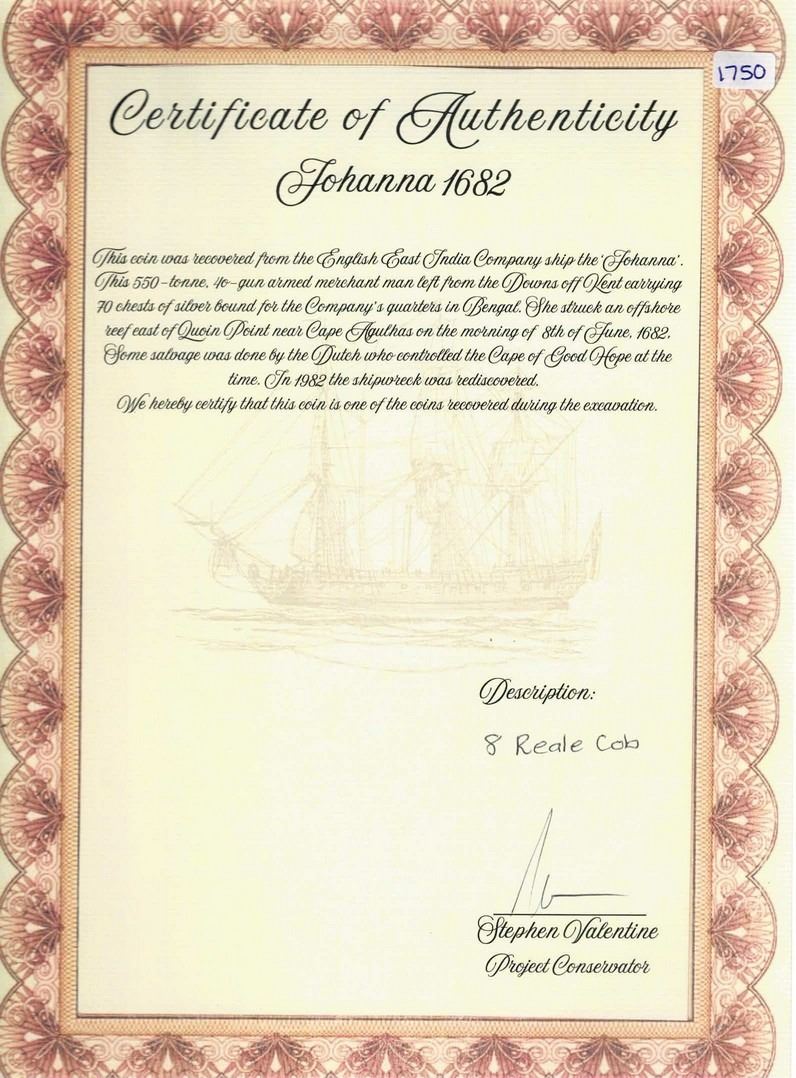 1750
Certificate of Authenticity
Johanna 1682
This coin was recovered from the English East India Company ship the 'Johanna'.
This 550-tonne, 40-gun armed merchant man left from the Downs off Kent carrying
70 chests of silver bound for the Company's quarters in Bengal. She struck an offshore
reef east of Quoin Point near Cape Agulhas on the morning of 8th of June, 1682.
Some salvage was done by the Dutch who controlled the Cape of Good Hope at the
time. In 1982 the shipwreck was rediscovered.
We hereby certify that this coin is one of the coins recovered during the excavation.
Description:
8 Reale Cob
Stephen Valentine
Project Conservator